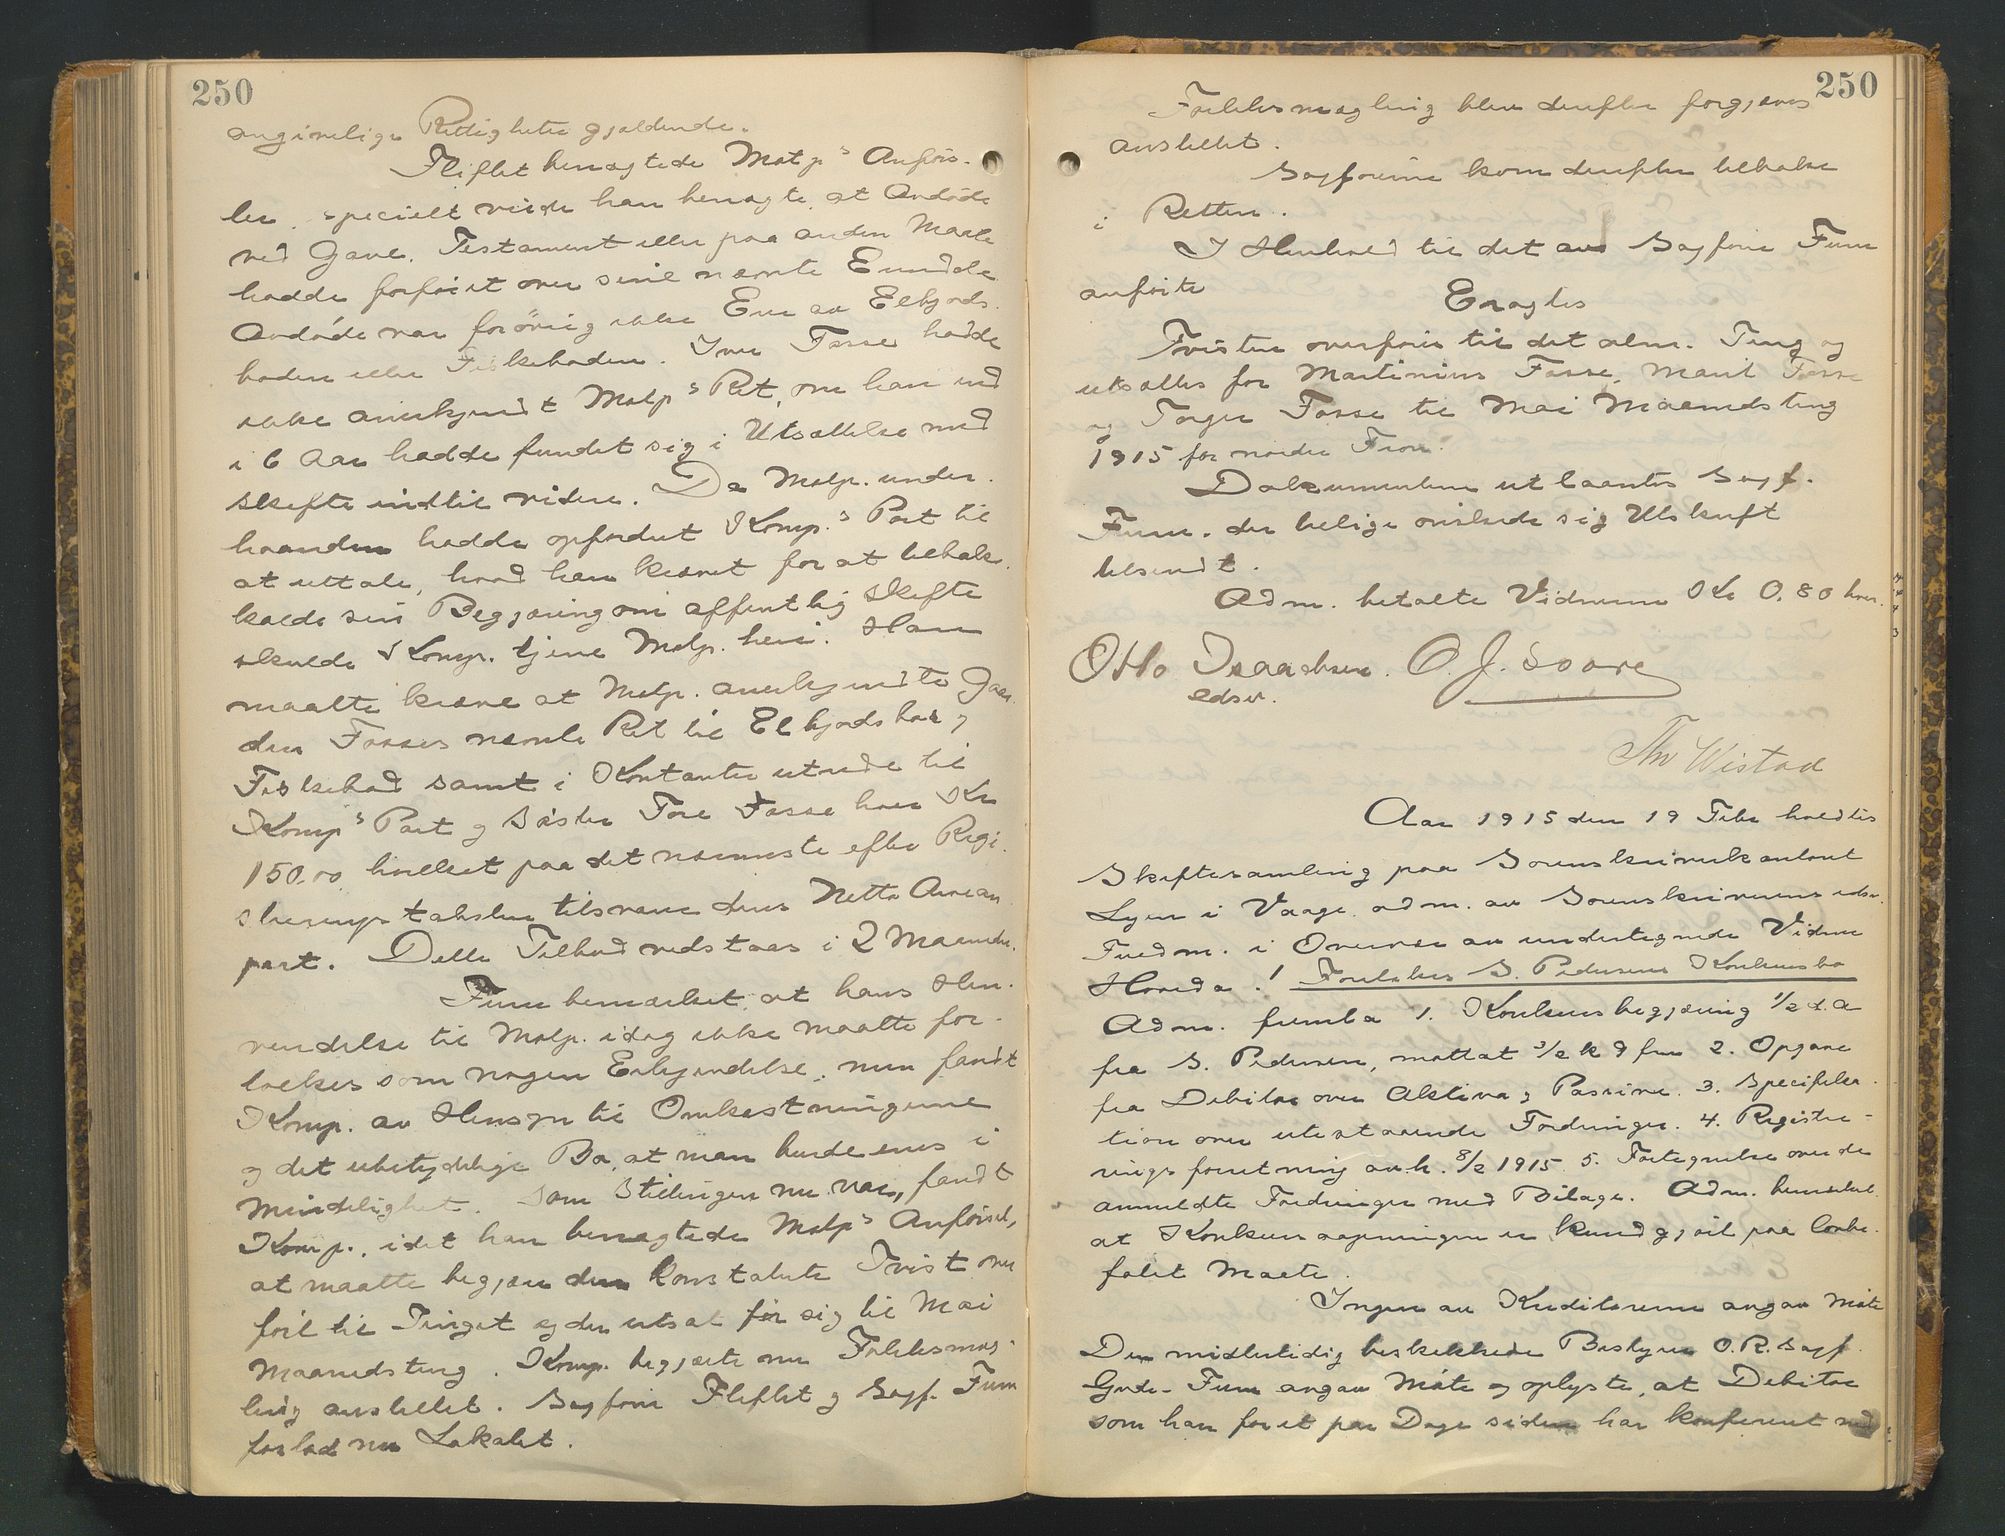 250
angivelige Rettigheter gjældende.
Fliflet benægtede Motp's Anførs-
ler, specielt vilde han benægte, at Avdøde
ved Gave, Testament eller paa anden Maate
hadde forføiet over sine nævnte Eiendele.
Avdøde var forøvrig ikke Eier av Elhjords-
boden eller Fiskeboden. Iver Fosse hadde
ikke anerkjendt Motp's Ret, om han end
i 6 Aar hadde fundet sig i Utsættelse med
Skifte indtil videre. Da Motp. under-
haanden hadde opfordret Komp.'s Part til
at uttale, hvad han krævet for at tilbake-
kalde sin Begjæring om offentlig Skifte
skulde Komp. tjene Motp. heri. Han
maatte kræve at Motp. anerkjendte Gaar-
den Fosses nævnte Ret til Elhjordsbod og
Fiskebod samt i Kontanter utrede til
Komp's Part og Søster Tore Fosse hver Kr
150.00 hvilket paa det nærmeste efter Regi-
streringstaksten tilsvarer deres Netto Arvean-
part. Dette Tilbud vedstaaes i 2 Maaneder.
Furu bemærket, at hans Hen-
vendelse til Motp. idag ikke maatte for-
tolkes som nogen Erkjendelse, men fandt
Komp. av Hensyn til Omkostningerne
og det ubetydelige Bo, at man burde enes i
Mindelighet. Som Stillingen nu var, fandt
Komp., idet han benægtede Motp's Anførsel,
at maatte begjære den konstaterte Tvist over
ført til Tinget og den utsat for sig til Mai
Maanedsting. Komp. begjærte nu Forliksmæg-
ling anstillet. Sagfører Fliflet og Sagf. Furu
forlod nu Lokalet.
250
Forliksmægling blev derefter forgjæves
anstillet.
Sagførerne kom derefter tilbake
i Retten.
I Henhold til det av Sagfører Furu
anførte
Eragtes
Tvisten overføres til det alm. Ting og
utsættes for Martinius Fosse, Marit Fosse
og Torger Fosse til Mai Maanedsting
1915 for nordre Fron.
Dokumenterne utlaantes Sagf.
Furu, der tillige ønskede sig Utskrift
tilsendt.
Adm. betalte Vidnerne Kr 0.80 hver.
Otto Isaachsen. O. J. Soore
edsv.
Thv Wistad
Aar 1915 den 19 Febr holdtes
Skiftesamling paa Sorenskriverkontoret
Lyen i Vaage, adm. av Sorenskriverens edsv.
Fuldm. i Overvær av undertegnede Vidne
Hovda. ! Foretokes S. Pedersens Konkursbo
Adm. fremla 1. Konkursbegjæring 1/2 d. A
fra S. Pedersen, mottat 3/2 k 9 fm 2. Opgave
fra Debitor over Aktiva og Passiva. 3. Specifika-
tion over utestaaende Fordringer. 4. Registre-
ringsforretning avh. 8/2 1915. 5. Fortegnelse over de
anmeldte Fordringer med Bilage. Adm. bemerket
at Konkursaapningen er kundgjort paa lovbe-
falet Maate.
Ingen av Kreditorerne angav Møte
Den midlertidig beskikkede Bestyrer O.R. Sagf.
Gude-Furu angav Møte og oplyste, at Debitor
som han for et par Dage siden har konferert med